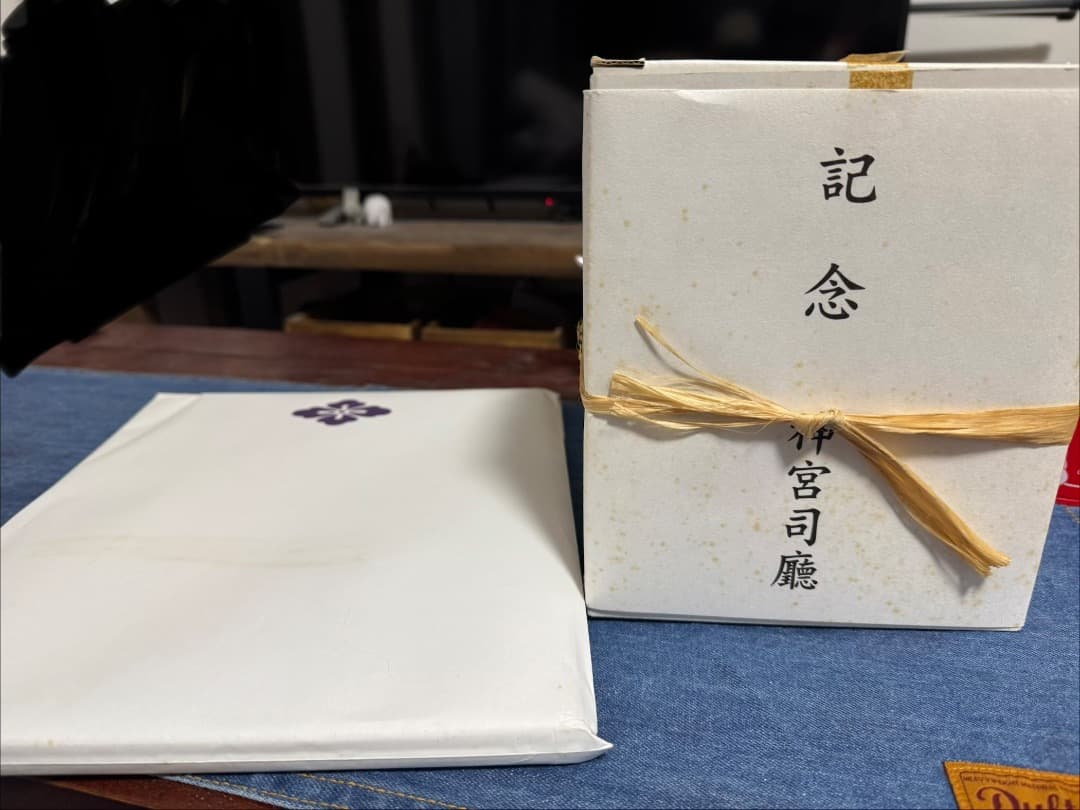 記念
神宮司廳